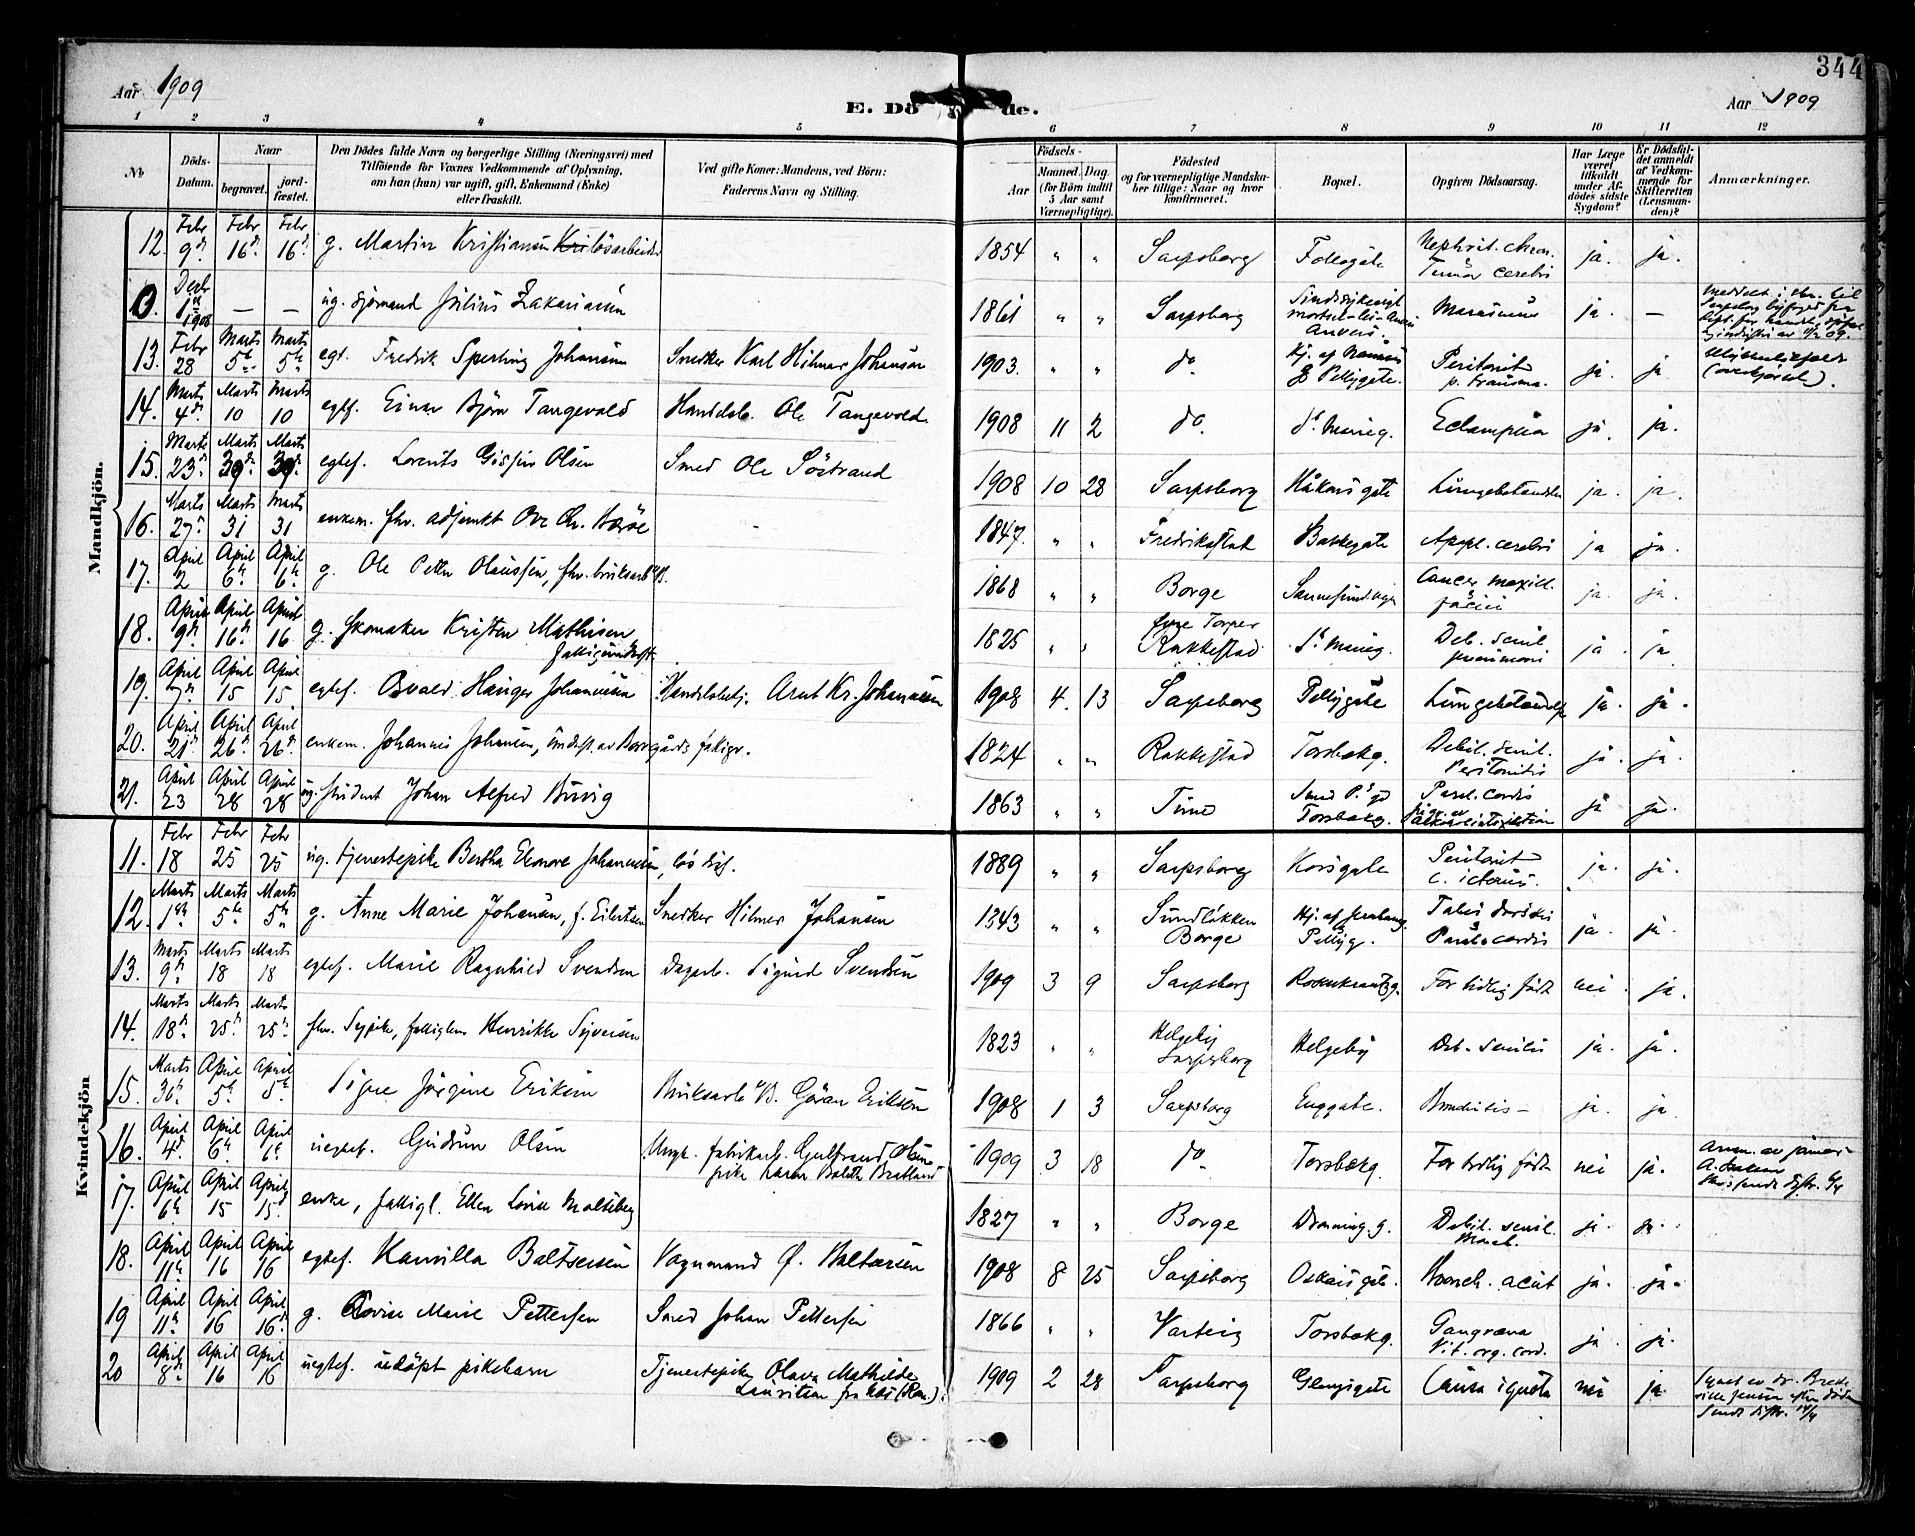 344
Aar 1909
E. Dö de.
Aar 1909
1 2 3 4 5 6 7 8 9 10 11 12
No
Döds-Datum.
Naar
begravet.
jordfæstet.
Den Dödes fulde Navn og borgerlige Stilling (Næringsvei) med
Tilföiende for Voxnes Vedkommende af Oplysning,
om han (hun) var ugift, gift, Enkemand (Enke)
eller fraskilt.
Ved gifte Koner: Mandens, ved Börn:
Faderens Navn og Stilling.
Födsels-
Aar
Maaned. Dag.
(for Börn indtil
5 Aar samt
Værnepligtige).
Födested
og for værnepligtige Mandska-
ber tillige: Naar og hvor
konfirmeret.
Bopæl.
Opgiven Dödsaarsag.
Har Læge
været
tilkaldt
under Af-
dödes sidste
Sygdom?
Er Dödsfal-
det anmeldt
af Vedkom-
mende for
Skifteretten
(Lensman-
den)?
Anmærkninger.
Mandkjön.
12. Febr 9de Febr 16de Febr 16de g. Martin Kristiansen Kri lösarbeider 1854 " " Sarpsborg Follogate Nephrit. chron. Tumor cerebri ja. ja.
0. Decbr 1ste 1908 — — ug. sjömand Julius Zakariasen 1861 " " Sarpsborg Marasmus ja. —
13. Febr 28 Marts 5te Marts 5te egt. Fredrik Sperling Johansen Snedker Karl Hilmar Johansen 1903. " " do Hj. af Pellygate. Peritonit p. trauma. ja. ja (overkjörsel).
14. Marts 4de Marts 10 Marts 10 egtf. Einar Björn Tangevold Handelsb. Ole Tangevold 1908 11 2 do. St. Marieg. Eclampsia ja. ja.
15. Marts 23de Marts 30de Marts 30de egtef. Lorents Olsen Smed Ole Söstrand 1908 10 28 Sarpsborg Håkonsgate Lungebetændelse ja. ja.
16. Marts 27de Marts 31 Marts 31 enkem. fhv. adjunkt Ove Chr. 1847. " " Fredrikstad Bakkegate Apopl. cerebri ja ja.
17. April 2 April 6te April 6te g. Ole Petter Olaussen, fhv. bruksarb v/B. 1868 " " Borge Sannesundveien Cancer maxill. & faciei ja. ja.
18. April 9de April 16de April 16 g. Skomaker Kristen Mathisen, fattigunderst. 1825 " " Torper Rakkestad St. Marieg. Deb. senil pneumoni ja. ja
19. April 7de April 15 April 15 egtef. Osvald Johannesen Handelsbetj. Arnt Kr. Johannesen 1908 4. 13 Sarpsborg Pellygate Lungebetændelse ja. ja.
20. April 21de April 26de April 26de enkem. Johannes Johansen, underst. av Borregårds fattigv. 1824 " " Rakkestad Torsbakg. Debil. senil. Peritonitis ja. ja.
21. April 23 April 28 April 28 ug. student Johan Alfred Buvig 1863 " " Torsbakg. Paral. cordis ja ja.
Kvindekjön
11. Febr 18 Febr 25 Febr 25 ug. tjenestepike Bertha Elenore Johannesen, 1889 " " Sarpsborg Korsgate Peritonit c. icterus. ja. ja.
12. Marts 1ste Marts 5te Marts 5te g. Anne Marie Johansen, f. Eilertsen Snedker Hilmer Johansen 1843 " " Sundlökken Borge Hj. af Pellyg. Tabes dorsalis Paral. cordis ja. ja.
13. Marts 9de Marts 18 Marts 18 egtef. Marie Ragnhild Svendsen Dagarb. Sigurd Svendsen 1909 3 9 Sarpsborg Rosenkrantzg. For tidlig födt nei. ja.
14. Marts 18de Marts 25de Marts 25de fhv. Sypike, fattiglem Henrikke Syversen 1823 " " Helgeby Sarpsborg Helgeby Deb. senilis ja. ja.
15. Marts 30te April 5te April 5te Signe Jörgine Eriksen Bruksarb v/B. Göran Eriksen 1908 1 3 Sarpsborg Enggate. Bronchitis — ja. ja
16. April 4de April 6te April 6te uegtef. Gudrun Olsen Ungk. fabrikarb. Gulbrand Olsen pike Karen 1909 3 18 do. Torsbakg. For tidlig födt nei ja.
17. April 6te April 15 April 15de enke, fattigl. Ellen Lovise Maltiberg 1827 " " Borge Dronning.g. Debil. senil. ja. ja.
18. April 11te April 16 April 16 egtef. Kamilla Baltsersen Vognmand O. Baltsersen 1908 8 25 Sarpsborg Oskarsgate. Bronch. acut ja. ja.
19 April 11te April 16 April 16de g. Lovise Marie Pettersen Smed Johan Pettersen 1866 " " Varteig Torsbakg. Gangræna Vit. org. cord. ja. ja.
20 April 8de April 16 April 16 uegtef. udöpt pikebarn Tjenestepike Olava Mathilde Lauritsen fra 1909 2 28 Sarpsborg Glengsgate Causa ignota nei ja